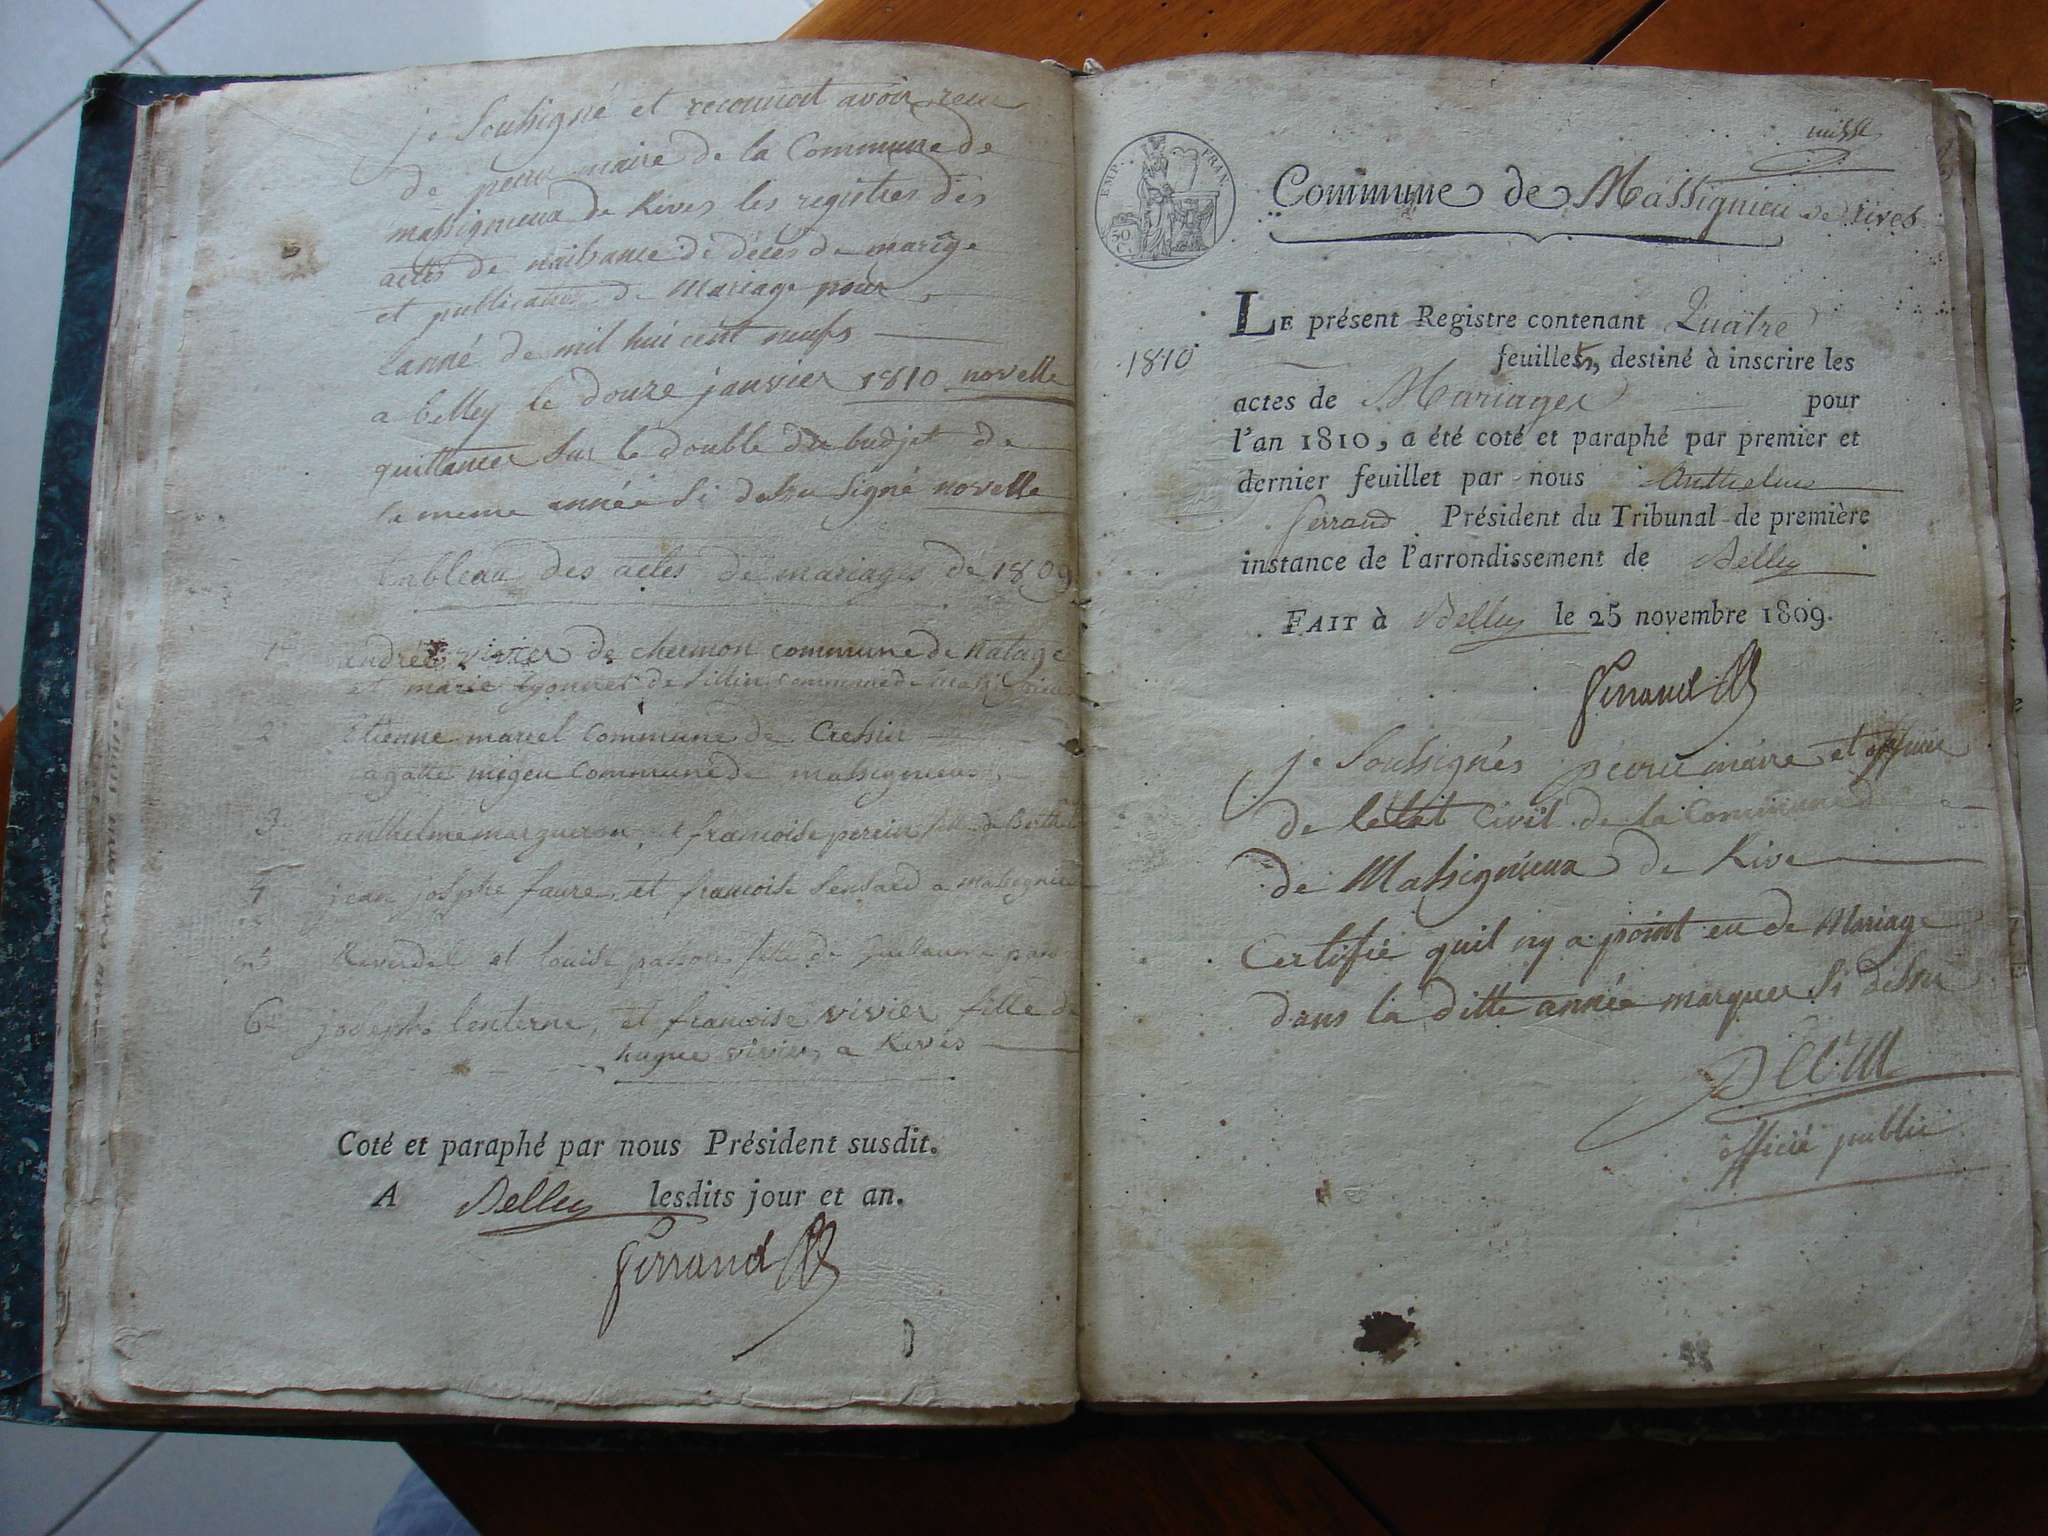 je Soussigné et reconnoit avoir reçu
de peeur maire de la Commune de
massignieux de Rives les registres des
actes de naissance de décès de marige
et publication de Mariage pour
lanné de mil hui cent neufs
a belley le douze janvier 1810 novelle
quittances sur le double du budjet de
la meme année Si dessu signé novelle
tableau des actes de mariages de 1809
1er andré vivier de chemon commune de Natage
et marie lyonnet de Sillin commune de
2 Etienne marcel Commune de Cressin
agatte migeu commune de massignieux
3 anthelme margueron et francoise perein fille de
4 jean josphe faure et francoise Sensard a massignieu
5 Reverdel et louise passon fille de
6e josephe lenterne, et francoise vivier fille de
hugue vivier, a Rives
Coté et paraphé par nous Président susdit.
A Belley lesdits jour et an.
Ferrand
EMP. FRAN.
50 C.
Commune de Massignieu de rives
LE présent Registre contenant Quatre
1810
feuillets, destiné à inscrire les
actes de Mariages pour
l'an 1810, a été coté et paraphé par premier et
dernier feuillet par nous Anthelme
Ferrand Président du Tribunal de première
instance de l'arrondissement de Belley
FAIT à Belley le 25 novembre 1809.
Ferrand
je Soussignés maire et officié
de letat civil de la Commune
de Massignieux de Rive
Certifié quil ny a point eu de Mariage
dans la ditte année marquer Si dessu
officié public